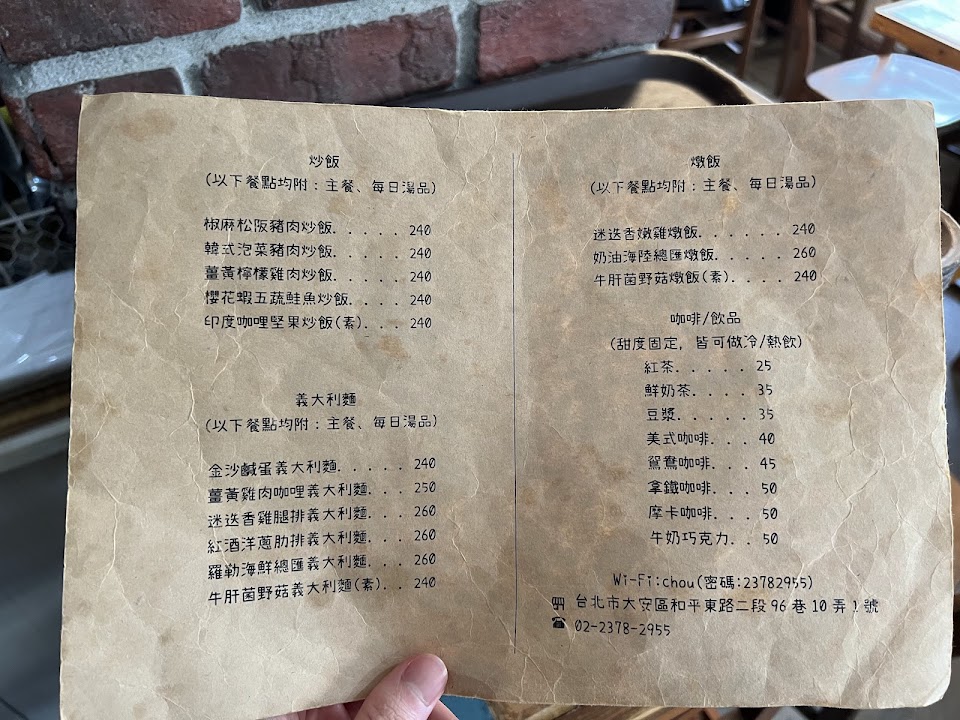 炒飯
(以下餐點均附：主餐、每日湯品)
椒麻松阪豬肉炒飯. . . . . 240
韓式泡菜豬肉炒飯. . . . . 240
薑黃檸檬雞肉炒飯. . . . . 240
櫻花蝦五蔬鮭魚炒飯. . . . 240
印度咖哩堅果炒飯(素). . . 240
義大利麵
(以下餐點均附：主餐、每日湯品)
金沙鹹蛋義大利麵. . . . . 240
薑黃雞肉咖哩義大利麵. . . 250
迷迭香雞腿排義大利麵. . . 260
紅酒洋蔥肋排義大利麵. . . 260
羅勒海鮮總匯義大利麵. . . 260
牛肝菌野菇義大利麵(素). . 240
燉飯
(以下餐點均附：主餐、每日湯品)
迷迭香嫩雞燉飯. . . . . . 240
奶油海陸總匯燉飯. . . . . 260
牛肝菌野菇燉飯(素). . . . 240
咖啡/飲品
(甜度固定，皆可做冷/熱飲)
紅茶. . . . . 25
鮮奶茶. . . . 35
豆漿. . . . . 35
美式咖啡. . . 40
鴛鴦咖啡. . . 45
拿鐵咖啡. . . 50
摩卡咖啡. . . 50
牛奶巧克力. . 50
Wi-Fi:chou(密碼:23782955)
台北市大安區和平東路二段96巷10弄1號
02-2378-2955